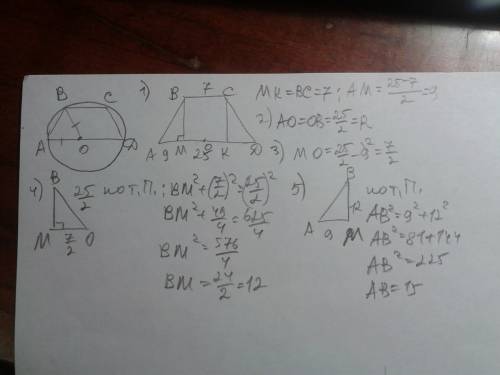 1)
B C
A O D
B 7 C
A 9 M 25 O K D
MK = BC = 7; AM = (25-7)/2 = 9
2) AO = OB = 25/2 = R
3) MO = 25/2 - 9 = 7/2
4)
B
25/2
M 7/2 O
по т. П.; BM² + (7/2)² = (25/2)²
BM² + 49/4 = 625/4
BM² = 576/4
BM = 24/2 = 12
5)
B
12
A 9 M
по т. П.
AB² = 9² + 12²
AB² = 81 + 144
AB² = 225
AB = 15